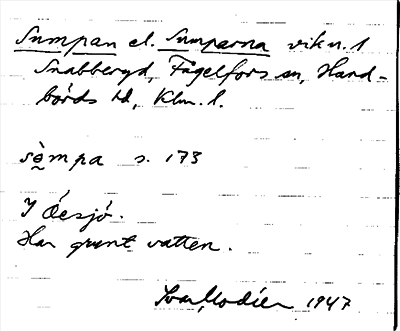 Sumpan el. Sumparna vik u. 1
Snabberyd, Fagelfors sn, Hand-
börds hd, Klm. l.
sòmpa s. 173
I Öesjö.
Har grunt vatten.
Ivar Modéer 1947